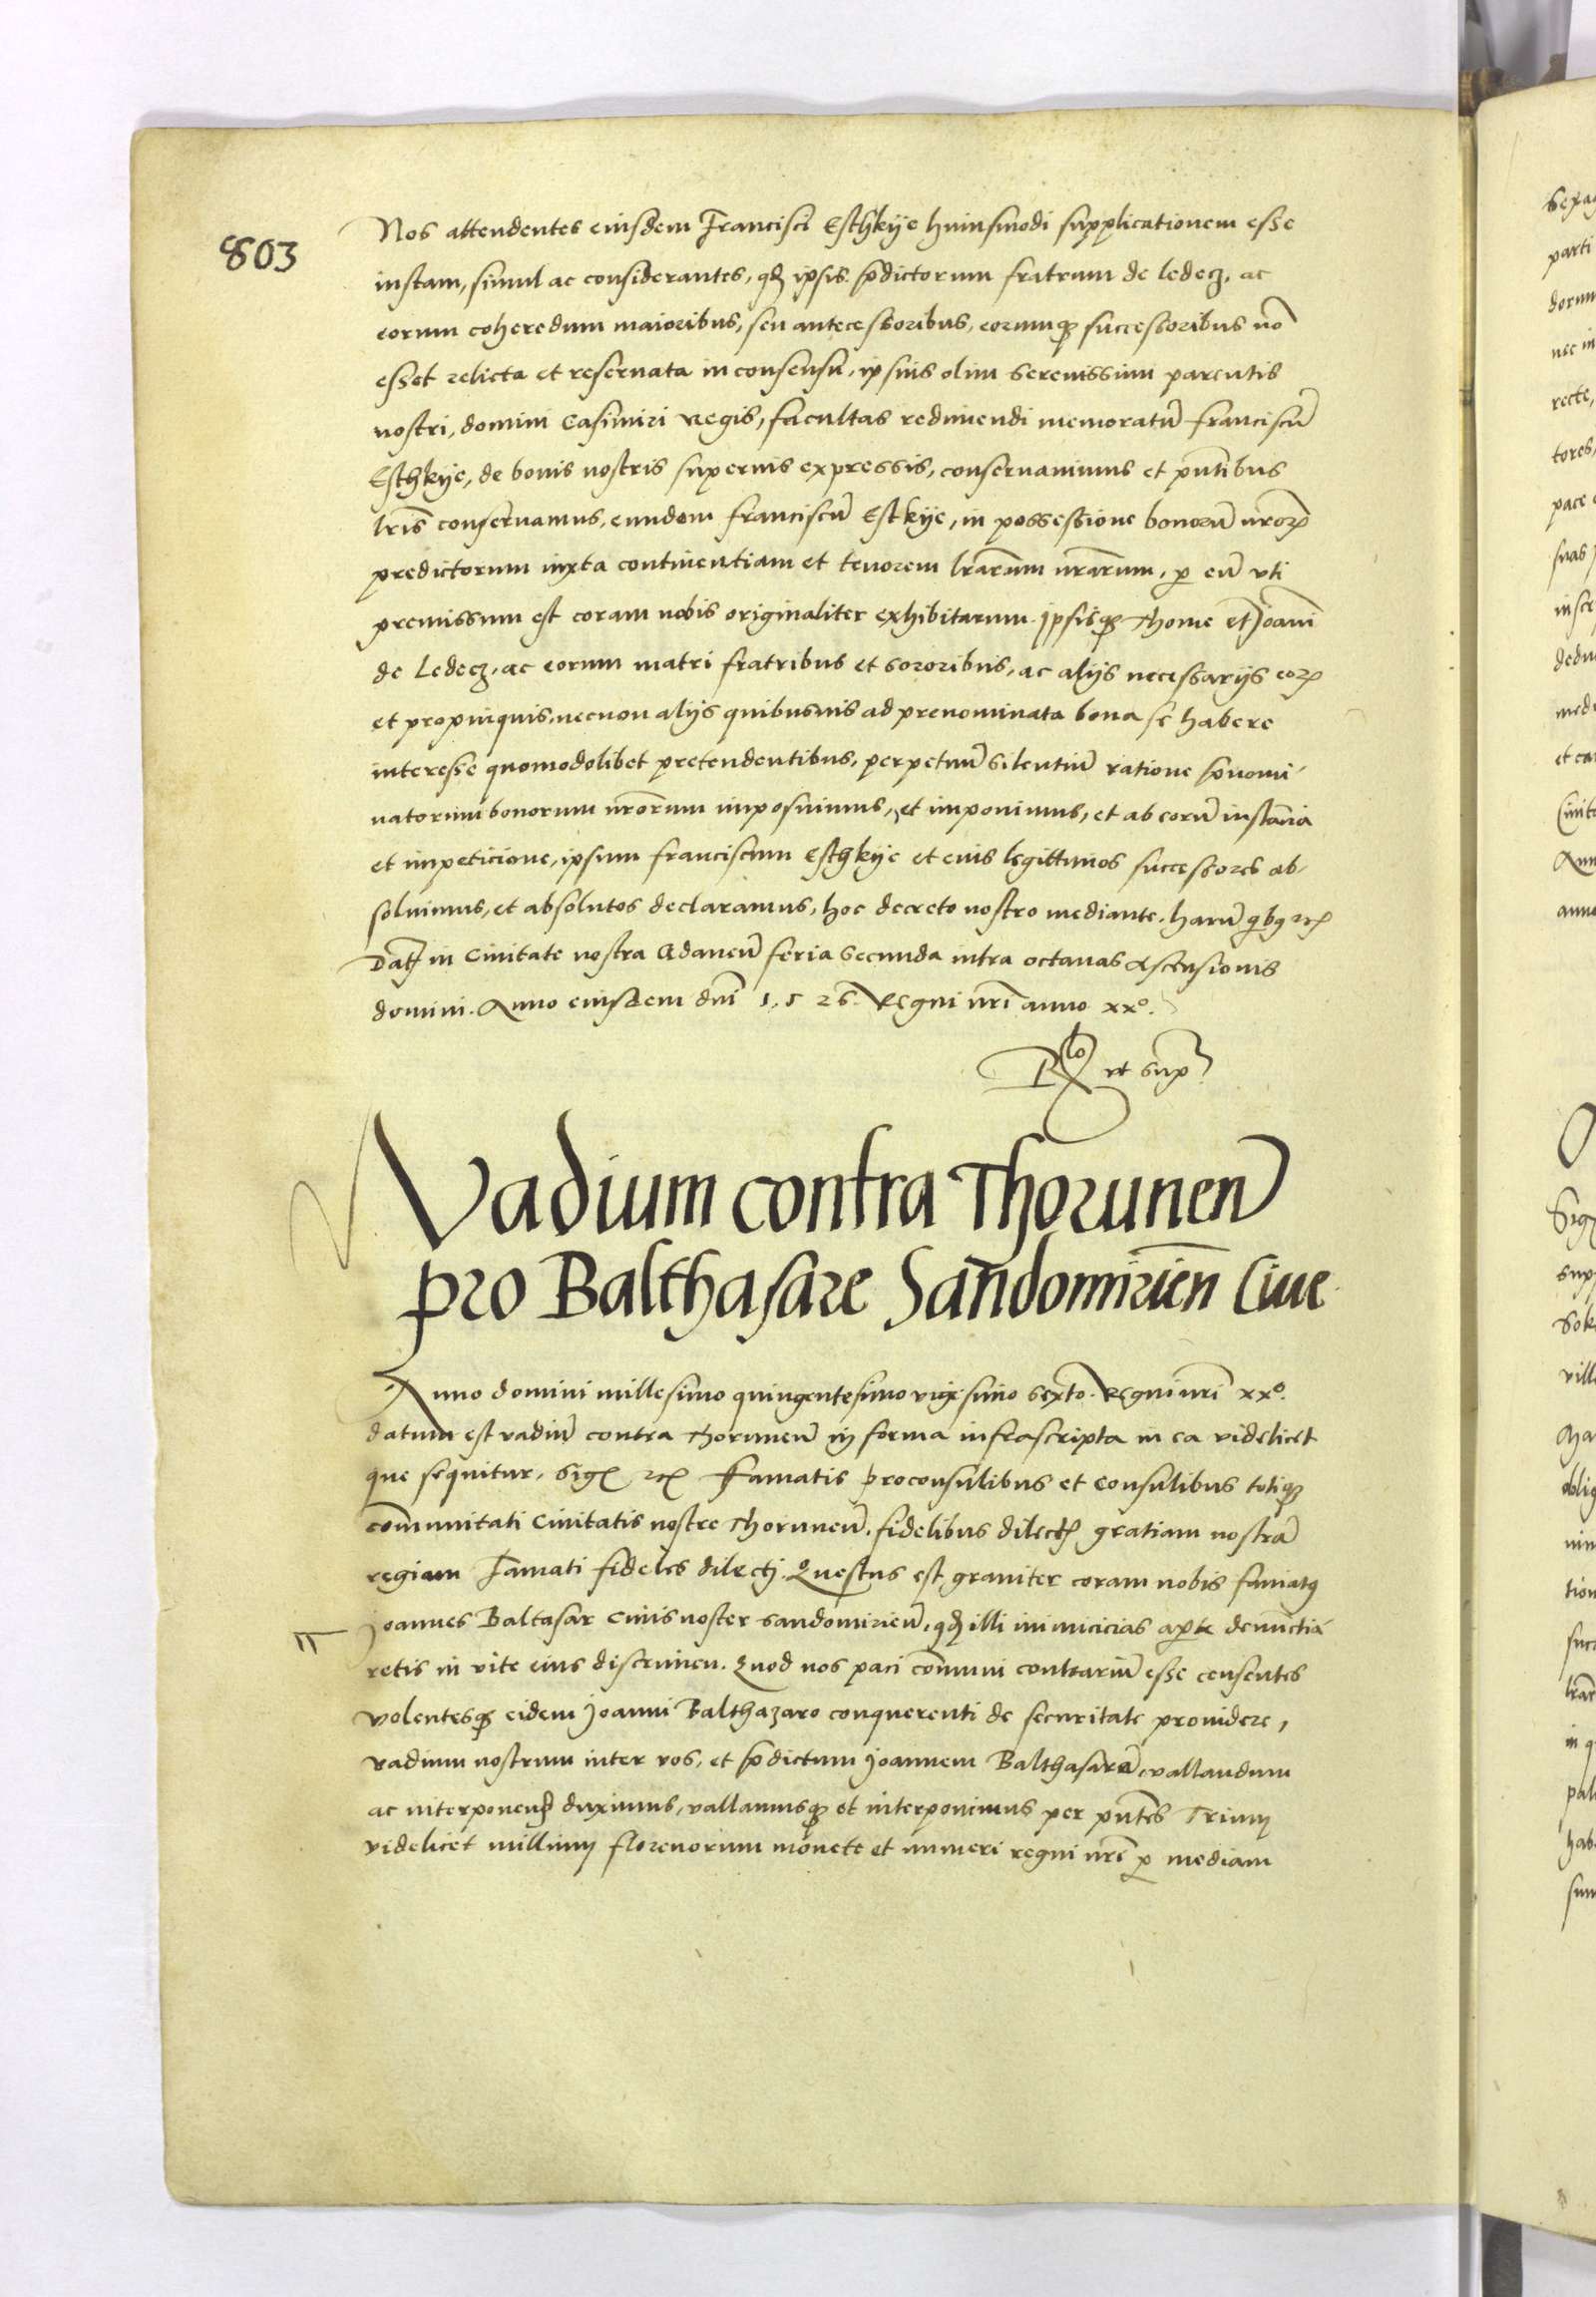 803
Nos attendentes eiusdem Francisci Esthkije huiusmodi supplicationem esse
iustam, simul ac considerantes, qđ ipsis p̃dictorum fratrum de Ledecz, ac
eorum coheredum maioribus, seu antecessoribus, eorumqꝫ successoribus nō
esset relicta et reseruata in consensu, ipsius olim serenissimi parentis
nostri, domini Casimiri Regis, facultas redimendi memoratū franciscū
Esthkije, de bonis nostris supernis expressis, conseruauimus et p̄ntibus
lr̄is conseruamus, eundem franciscū Estkije, in possessione bonorū nr̄oꝝ
predictorum iuxta continentiam et tenorem lr̄arum nr̄arum, ꝑ eū vti
premissum est coram nobis originaliter exhibitarum. Ipsisqꝫ Thome et Joāni
de Ledecz, ac eorum matri fratribus et sororibus, ac alijs necessarijs eoꝝ
et propinquis, necnon alijs quibusuis ad prenominata bona se habere
interesse quomodolibet pretendentibus, perpetuū silentiū ratione p̃nomi-
natorum bonorum nr̄orum imposuimus, et imponimus, et ab eorū instātia
et impeticione, ipsum franciscum Esthkije et eius legittimos successores ab-
soluimus, et absolutos declaramus, hoc decreto nostro mediante. harū qbꝫ rcꝭ
Datꝭ in Ciuitate nostra Gdaneñ feria secunda intra octauas Ascensionis
domini. Anno eiusdem dn̄i 1526. Regni nr̄i anno xxᵒ.
Rlo vt sup̃
Vadium contra Thorunen̄
pro Balthasare Sandomirien̄ Ciue
Anno domini millesimo quingentesimo vigesimo sexto. Regni nr̄i xxᵒ.
datum est vadiū contra Thoruneñ in forma infrascripta in ea videlicet
que sequitur. Sigꝭ rcꝭ Famatis proconsulibus et Consulibus totiqꝫ
com̄unitati Ciuitatis nostre Thoruneñ. fidelibus dilectꝭ gratiam nostrā
regiam Famati fideles dilecti. Questus est grauiter coram nobis famatꝰ
Joannes Baltasar Ciuis noster sandomirieñ, qđ illi inimicicias aꝑte denuncia-
retis in vite eius discrimen. Quod nos paci com̄uni contrariū esse censentes
volentesqꝫ eidem Joanni Balthazaro conquerenti de securitate prouidere,
vadium nostrum inter vos, et p̃dictum Joannem Balthasarē, vallandum
ac interponenđ duximus, vallamusqꝫ et interponimus per p̄ntes Trium
videlicet millium florenorum monete et numeri regni nr̄i ꝑ mediam